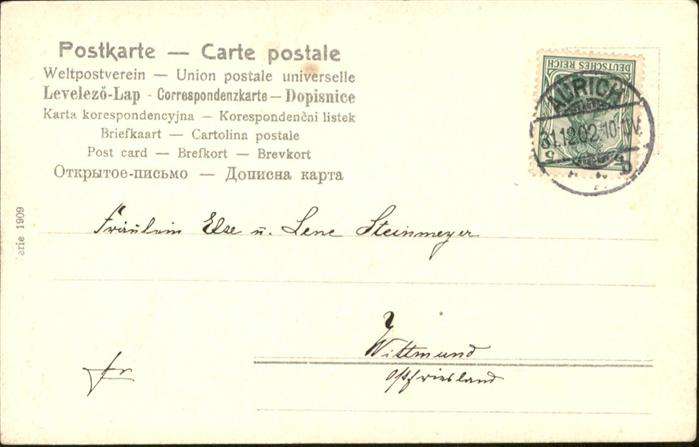 Postkarte — Carte postale
Weltpostverein — Union postale universelle
Levelező-Lap - Correspondenzkarte — Dopisnice
Karta korespondencyjna — Korespondenční listek
Briefkaart — Cartolina postale
Post card — Brefkort — Brevkort
Открытое-письмо — Дописна карта
DEUTSCHES REICH
AURICH
31.12.02.10-11V.
erie 1909
Fräulein Else u. Lene Steinmeyer
Wittmund
Ostfriesland
fr